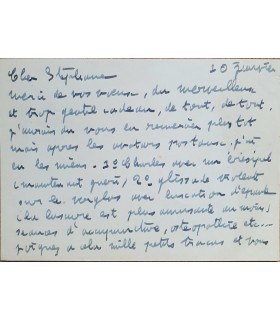 Cher Stéphane
20 Janvier
merci de vos vœux, du merveilleux
et trop gentil cadeau, de tout, de tout.
j'aurais du vous en remercier plus tôt
mais après les avatars postaux, j'ai
eu les miens. 1º Charles avec un érésipèle
(maintenant guéri), 2º glissade violente
sur le verglas avec luxation d'épaule
(la luxure est plus amusante au moins)
séances d'acupuncture, ostéopathie etc...
joignez a cela mille petits tracas et vous